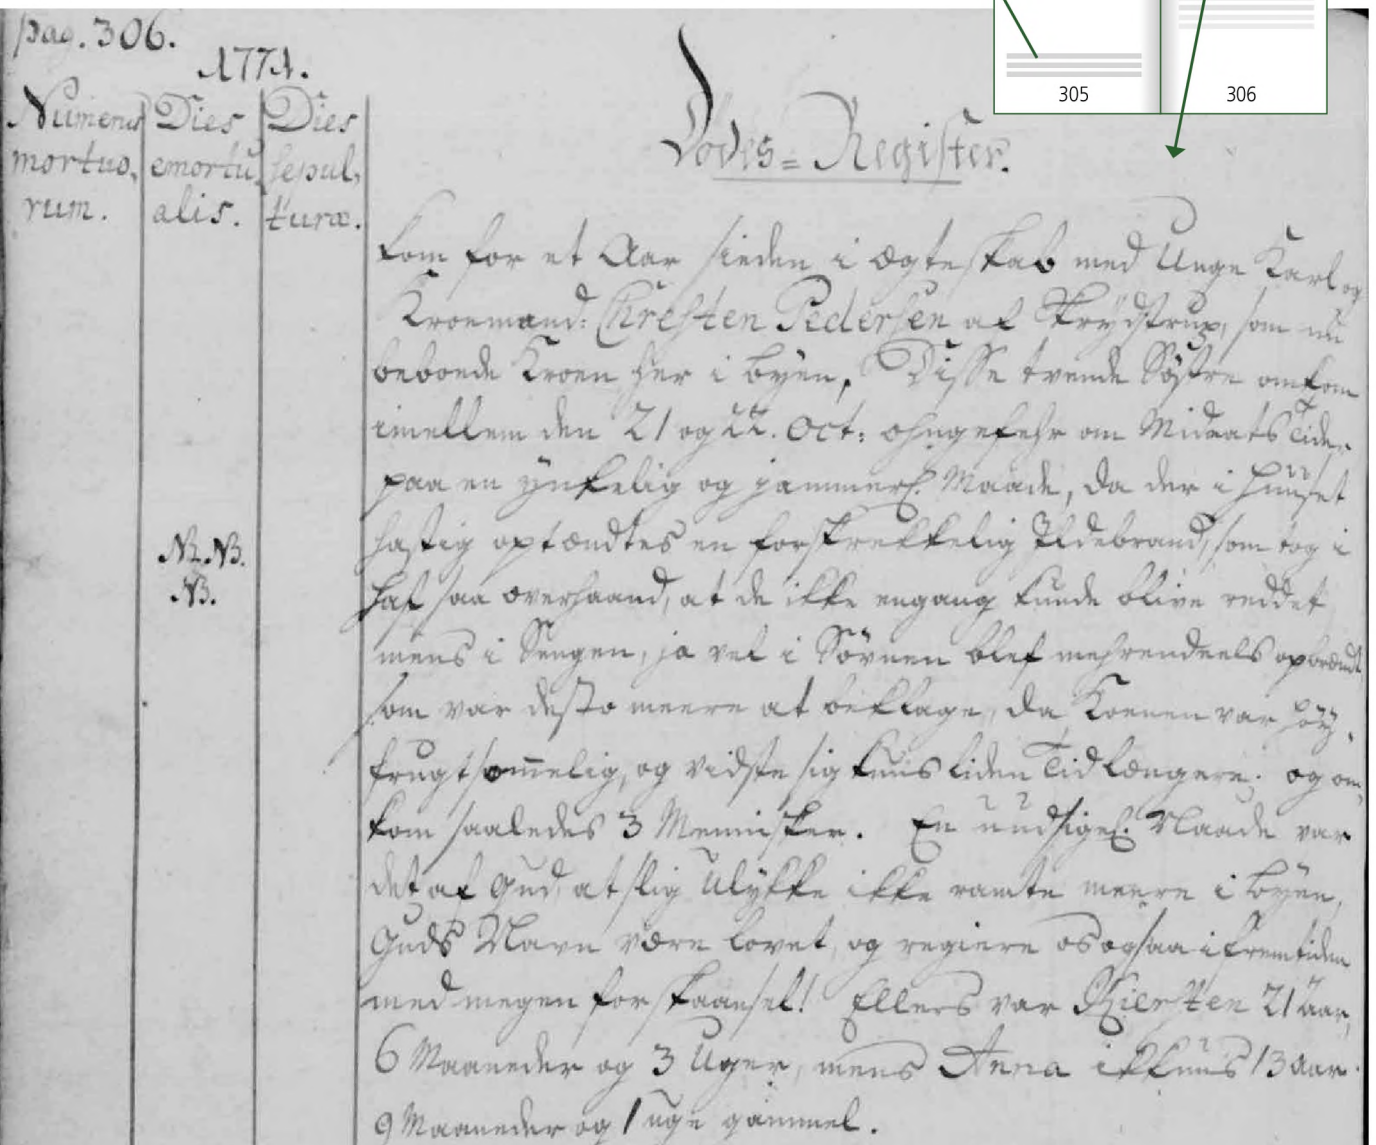 pag. 306.
1771.
305
306
Numerus mortuo, rum.
Dies emortu, alis.
Dies sepul, turæ.
Dødes = Register.
kom for et Aar sieden i Ægteskab med Unge Karl og
Kroemand: Chresten Pedersen af Skrydstrup, som nu
beboede Kroen her i byen, Disse tvende Søstre omkom
imellem den 21 og 22. Oct: ohngefehr om Midnats Tider
paa en ynkelig og jammerl. Maade, da der i Huuset
hastig optændtes en forskrekkelig Ildebrand, som tog i
N.NB.
NB.
Hast saa overhaand, at de ikke engang kunde blive reddet
mens i Sengen, ja vel i Søvnen blef mehrendeels opbrændt
som var desto meere at beklage, da Konen var høy,
frugtsommelig, og vidste sig kuns liden Tid længere. og om,
kom saaledes 3 Mennisker. En uudsigel. Naade var
det af Gud, at slig Ulykke ikke ramte meere i byen,
Guds Navn være lovet, og regiere os ogsaa i fremtiden
med megen forskaansel! Ellers var Kiersten 21 aar,
6 Maaneder og 3 Uger, mens Anna ikkuns 13 aar
9 Maaneder og 1 uge gammel.